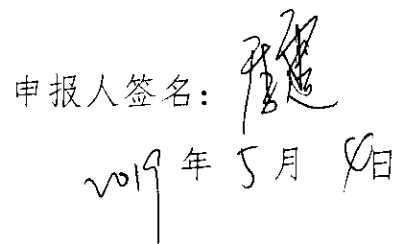 申报人签名：
2019年5月4日